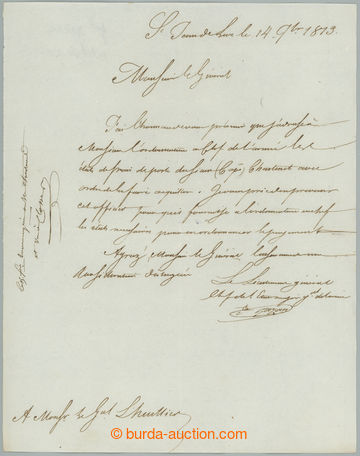 St Jean de Luz le 14 9bre 1813.
Monsieur le Général
J'ai l'honneur de vous prévenir que j'adresse à
Monsieur l'ordonnateur en Chef de l'armée les
états de frais de poste du Sieur Chartenet avec
ordre de le faire acquitter. Je vous prie de prévenir
cet officier pour qu'il fournisse à l'ordonnateur en chef
les états nécessaires pour en ordonnancer le payement
Agréez Monsieur le Général l'assurance de
ma considération distinguée
Le Lieutenant général
Chef de l'Etat major gal de l'armée
A Monsr le Gal Lhuillier
© burda-auction.com